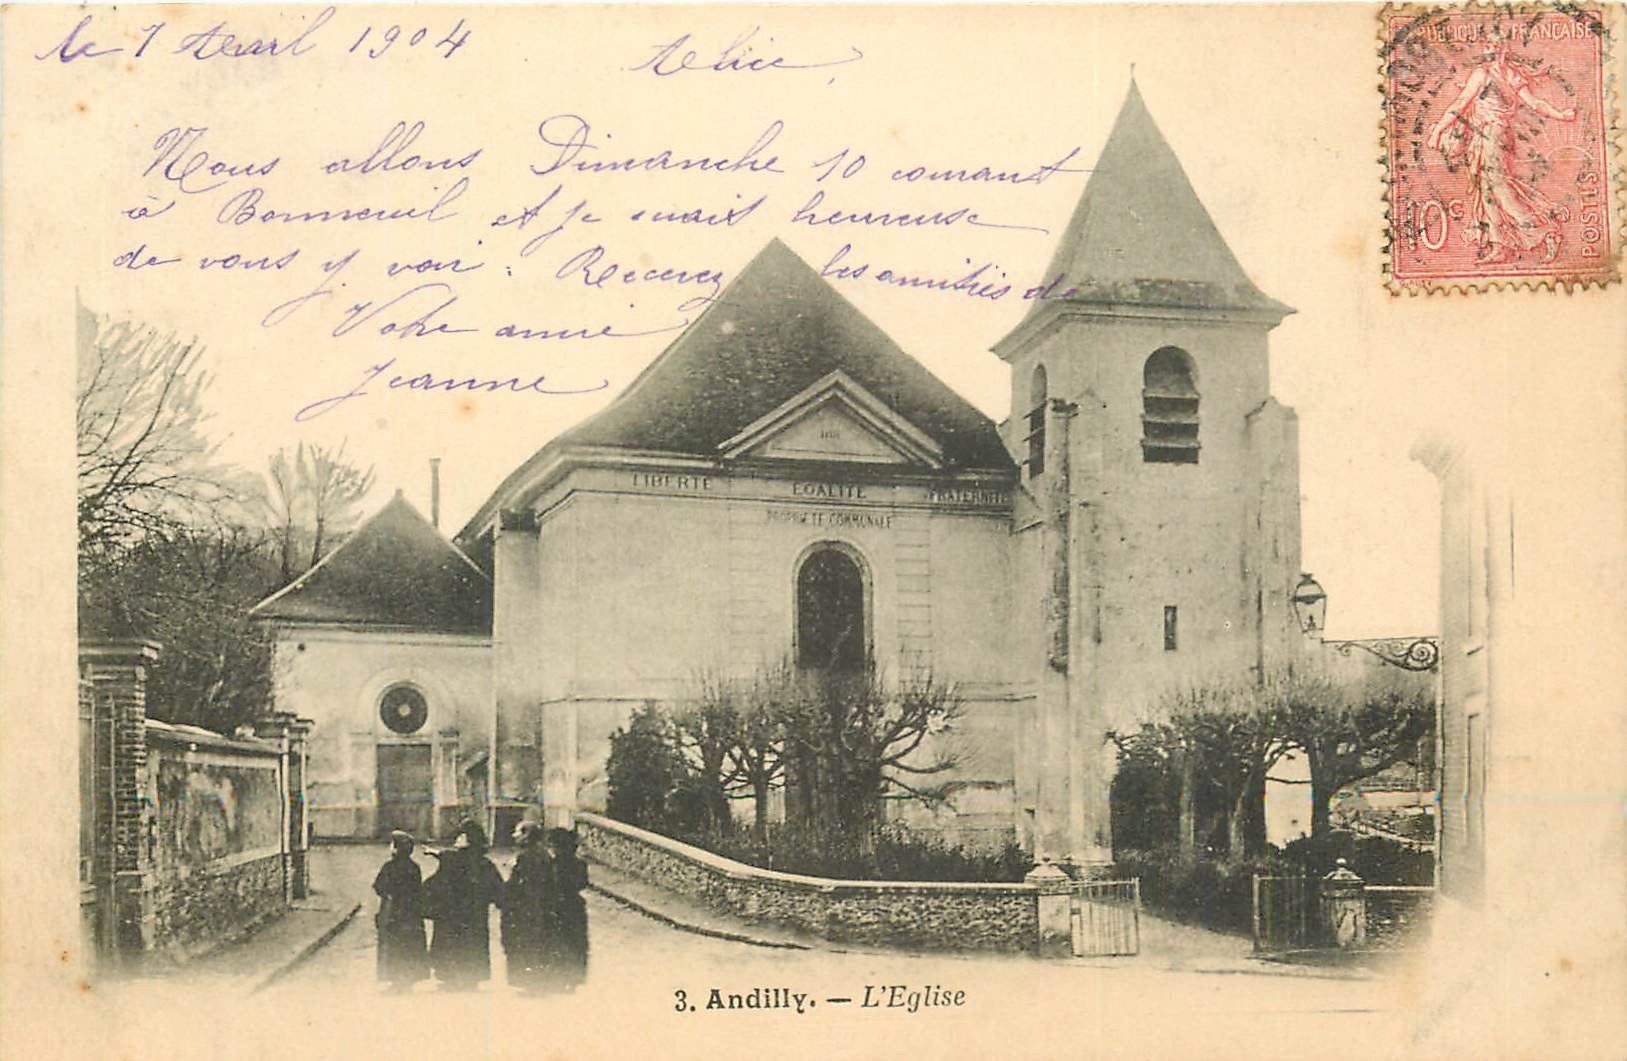 le 7 Avril 1904
Alice,
Nous allons Dimanche 10 courant
à Bonneuil et je serait heureuse
de vous y voir. Recevez les amitiés de
Votre amie
Jeanne
REPUBLIQUE FRANÇAISE
10c
POSTES
LIBERTÉ EGALITÉ FRATERNITÉ
PROPRIETE COMMUNALE
3. Andilly. — L'Eglise